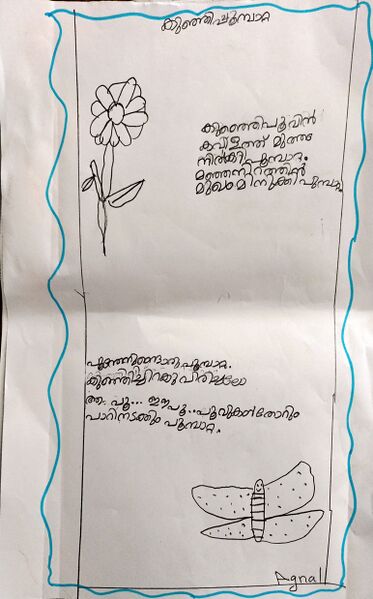 കുഞ്ഞിപ്പൂമ്പാറ്റ
കുഞ്ഞെിപൂവിൻ
കവിളത്ത് മുത്തം
നിൽകി പൂമ്പാറ്റ.
മഞ്ഞനിറത്തിൽ
മുഖംമിനുക്കി പൂമ്പാറ്റ.
പൂന്തേനുണ്ണൊരു പൂമ്പാറ്റ.
കുഞ്ഞിച്ചിറകു വിരിച്ചല്ലോ
ആ പൂ... ഈ പൂ.. പൂവുകൾതോറും
പാറിനടക്കും പൂമ്പാറ്റ.
Agnal